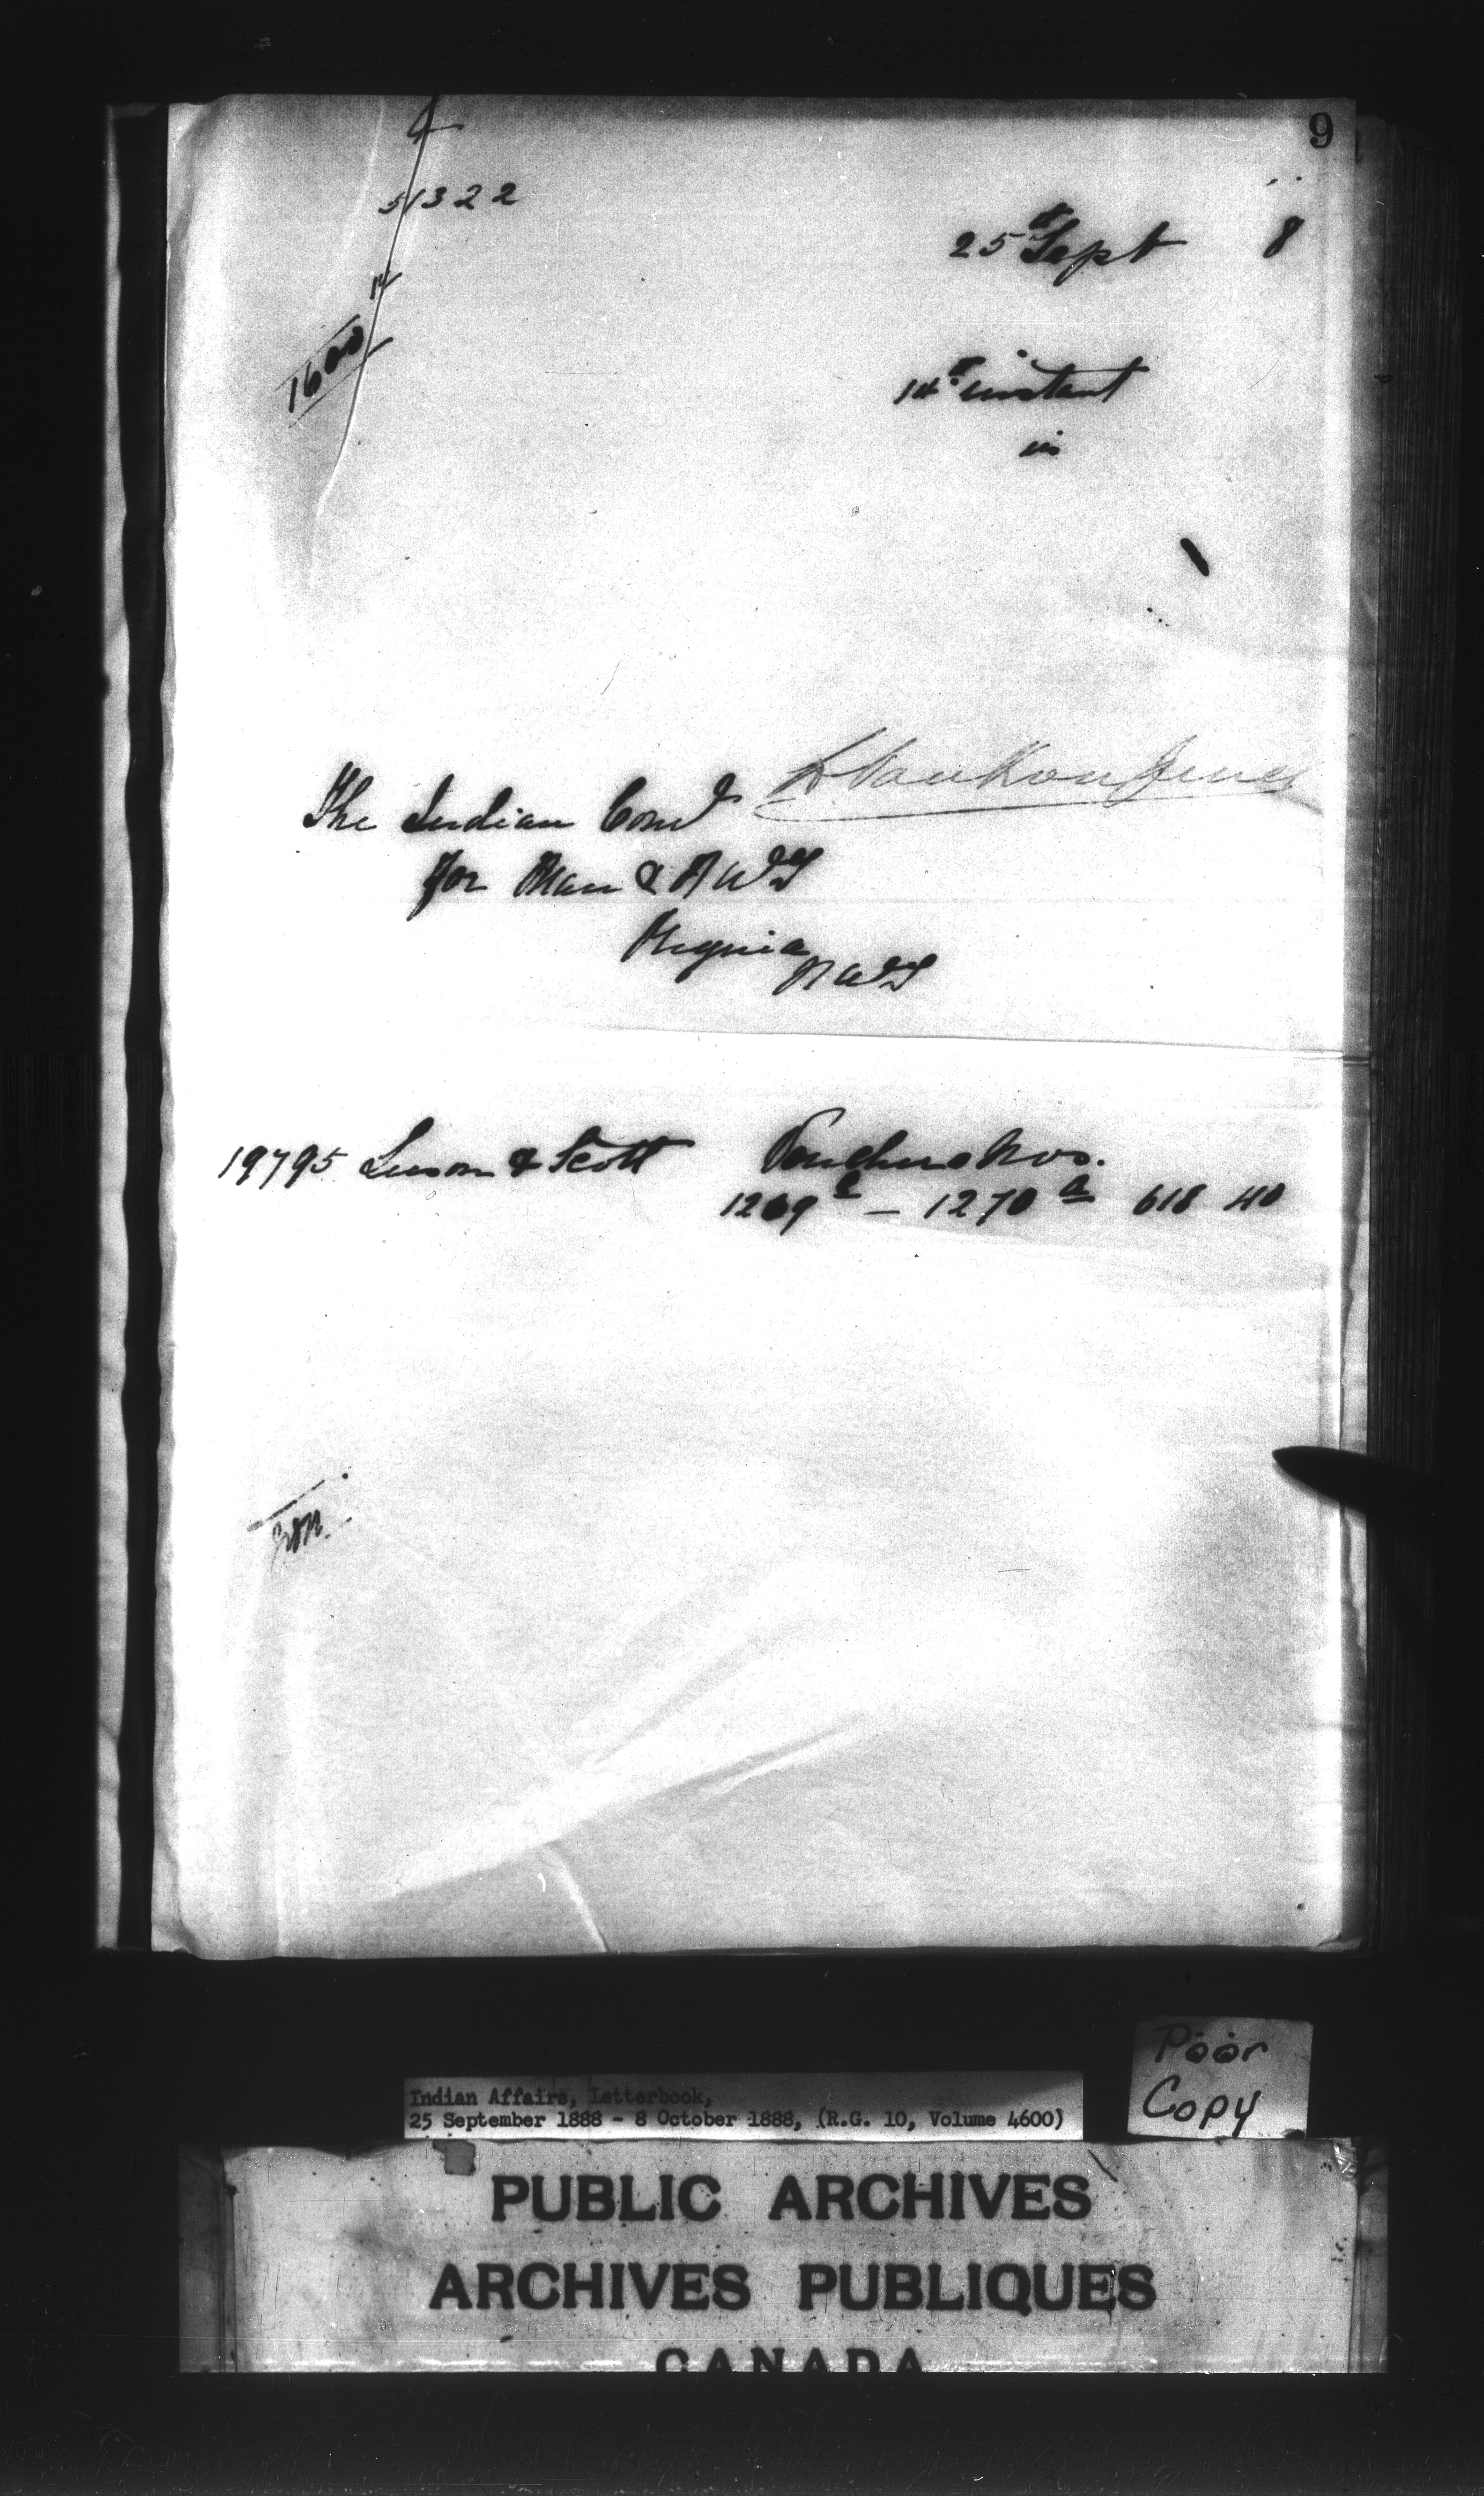 9
51322
25th Sept 8
1600
14th instant
in
L Vankoughnet
The Indian Comr
for Man & N W T
Regina
N W T
19795 Leeson & Scott Vouchers Nos.
1269a — 1270a 618 40
Poor
Copy
Indian Affairs, Letterbook,
25 September 1888 - 8 October 1888, (R.G. 10, Volume 4600)
PUBLIC ARCHIVES
ARCHIVES PUBLIQUES
CANADA